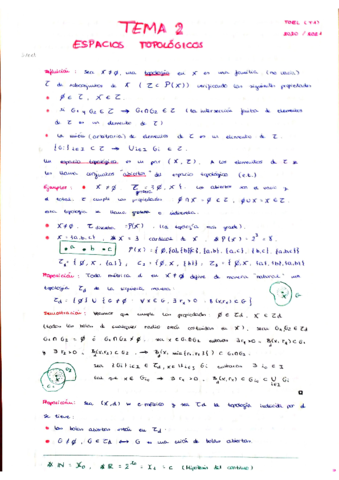 TEMA 2
ESPACIOS TOPOLÓGICOS
2020 / 2021
Definición: Sea X≠∅, una topología en X es una familia (no vacía)
τ de subconjuntos de X (τ⊂P(X)) verificando las siguientes propiedades
• ∅∈τ, X∈τ.
• Si G₁ y G₂ ∈ τ → G₁∩G₂∈τ (la intersección finita de elementos
de τ es un elemento de τ)
• La unión (arbitraria) de elementos de τ es un elemento de τ.
{Gi}i∈I ⊂ τ → ∪i∈I Gi ∈ τ.
Un espacio topológico es un par (X, τ). A los elementos de τ se
les llama conjuntos "abiertos" del espacio topológico (e.t.)
Ejemplos: • X≠∅ τ = {∅, X}. Los abiertos son el vacío y
el total. τ cumple las propiedades ∅∩X=∅∈τ, ∅∪X=X∈τ.
esta topología se llama grosera o indiscreta.
• X≠∅. τ discreta = P(X) (la topología más grande).
• X={a,b,c}, #X=3 cardinal de X, #P(X)=2³=8.
•a •b •c P(X)={∅,{a},{b},{c},{a,b},{a,c},{b,c},{a,b,c}}
Proposición: Toda métrica d en X≠∅ define de manera "natural" una
topología τd de la siguiente manera:
τd = {∅} ∪ {G≠∅ : ∀x∈G, ∃r>0 : B(x,r)⊂G}
Demostración: Veamos que cumple las propiedades ∅∈τd, X∈τd
(todas las bolas de cualquier radio están contenidas en X), sea G₁,G₂∈τd
G₁∩G₂=∅ ó G₁∩G₂≠∅. → Sea x∈G₁∩G₂ entonces ∃r₁>0, B(x,r₁)⊂G₁
y ∃r₂>0, B(x,r₂)⊂G₂ → B(x, min{r₁,r₂})⊂G₁∩G₂.
Sea {Gi}i∈I ⊂ τd
Proposición: Sea (X,d) e.métrico y sea τd la topología inducida por d
se tiene:
• Las bolas abiertas están en τd.
• G≠∅, G∈τd ⟺ G es una unión de bolas abiertas.